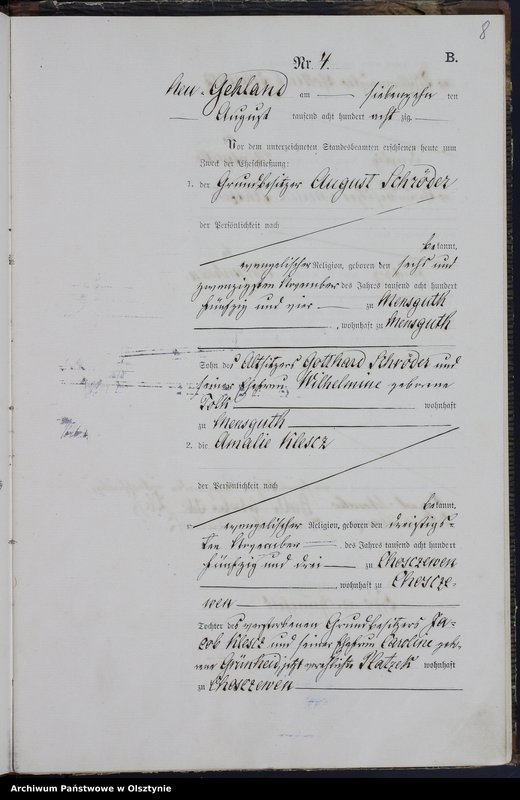 8
B.
Nr. 4.
Neu-Gehland am siebenzehn ten
August tausend acht hundert acht zig
Vor dem unterzeichneten Standesbeamten erschienen heute zum
Zweck der Eheschließung:
1. der Grundbesitzer August Schröder
der Persönlichkeit nach
bekannt,
evangelischer Religion, geboren den sechs und
zwanzigsten November des Jahres tausend acht hundert
fünfzig und vier zu Mensguth
, wohnhaft zu Mensguth
Sohn des Altsitzers Gotthard Schröder und
seiner Ehefrau Wilhelmine geborene
Tolk wohnhaft
zu Mensguth
2. die Amalie Klescz
der Persönlichkeit nach
bekannt,
evangelischer Religion, geboren den dreißigs-
ten November des Jahres tausend acht hundert
fünfzig und drei zu Choszczewen
, wohnhaft zu Choscze-
wen
Tochter des verstorbenen Grundbesitzers Ja-
cob Klescz und seiner Ehefrau Caroline gebo-
rene Grünheid, jetzt verehelichte Platzek wohnhaft
zu Choszczewen
Archiwum Państwowe w Olsztynie